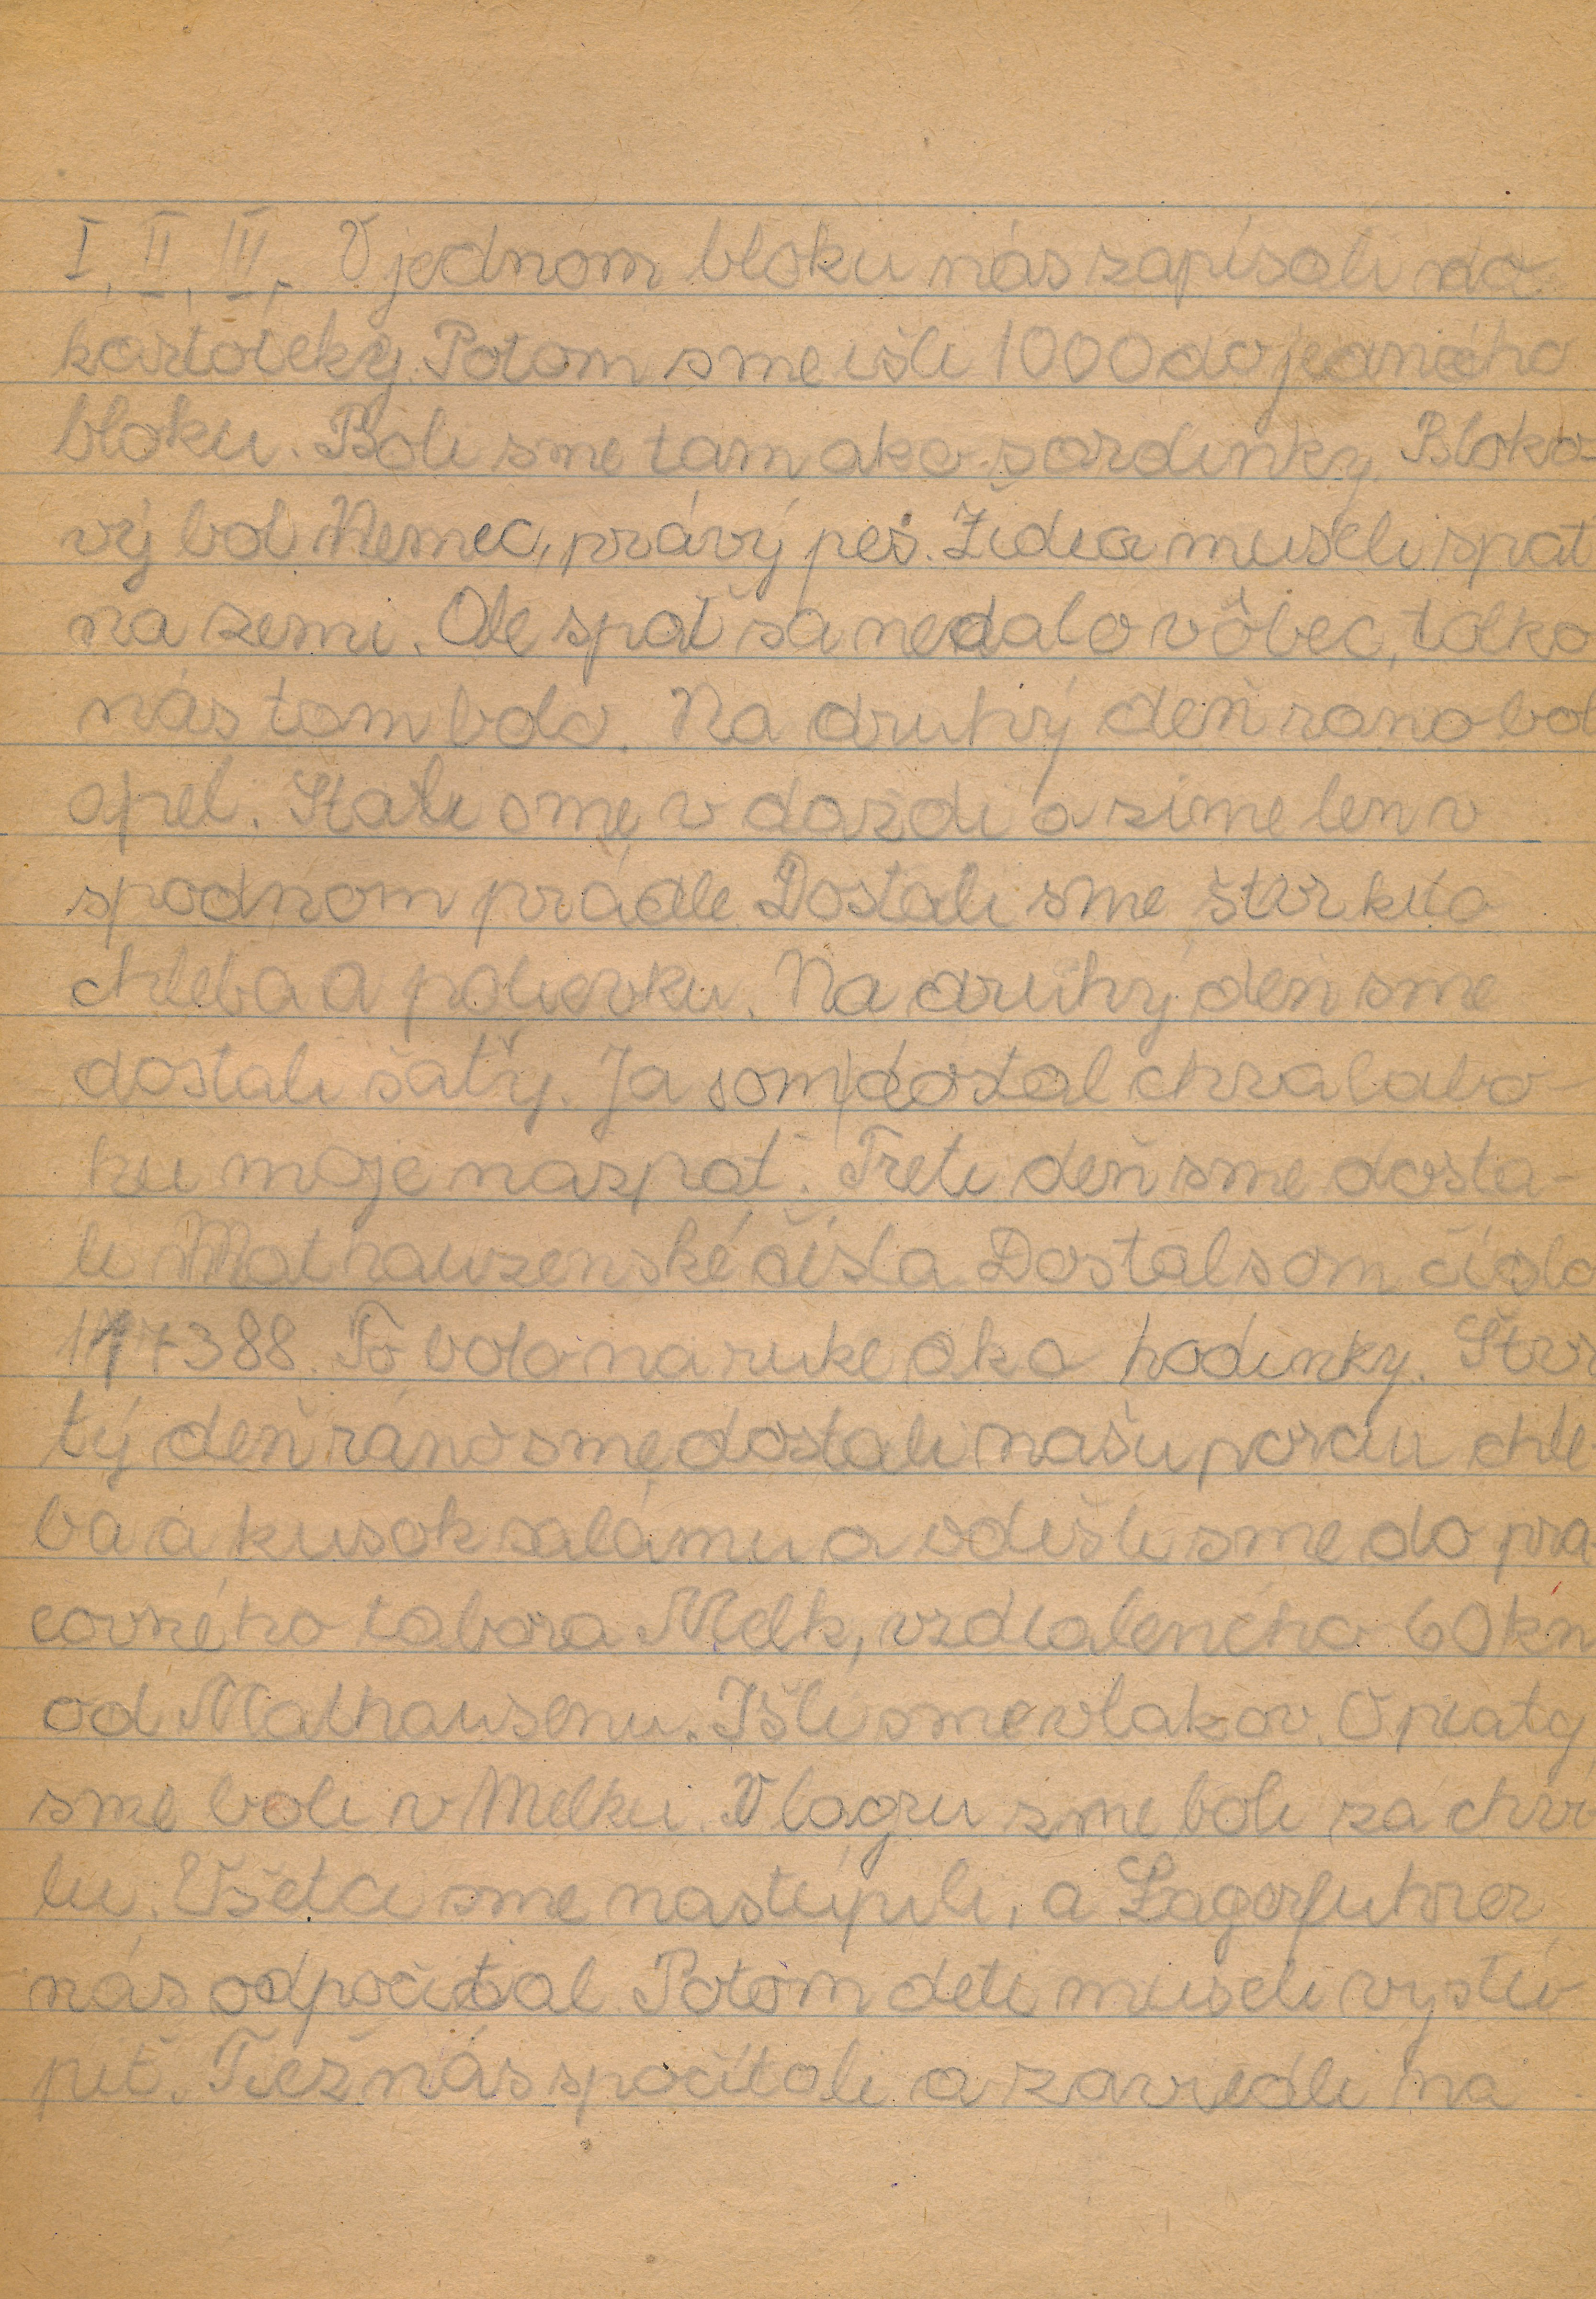 I, II, III, V jednom bloku nás zapísali do
kartoteky. Potom sme išli 1000 do jedneho
bloku. Boli sme tam ako sardinky. Bloko-
vý bol Nemec, právý pes. Židia museli spat
na zemi. Ale spať sa nedalo vôbec, tolko
nás tam bolo. Na druhý deň rano bol
apel. Stali sme v dazdi a zime len v
spodnom prádle Dostali sme štvrkúo
chleba a polievku. Na druhý deň sme
dostali šaty. Ja som dostal chvalabo-
hu moje naspať. Treti deň sme dosta-
li Mathauzenské čísla Dostal som číslo
117388. To bolo na ruke ako hodinky. Štvr
tý deň ráno sme dostali našu porciu chle
ba a kusok salámu a odišli sme do pra-
covného tabora Melk, vzdialeného 60 km
od Mathausenu. Išli sme vlakov. O piaty
sme boli v Melku. V lagru sme boli za chvi
lu. Všetci sme nastúpili, a Lagerfuhrer
nás odpočital Potom deti museli vystú-
piť. Tiež nás spočítali a zaviedli na